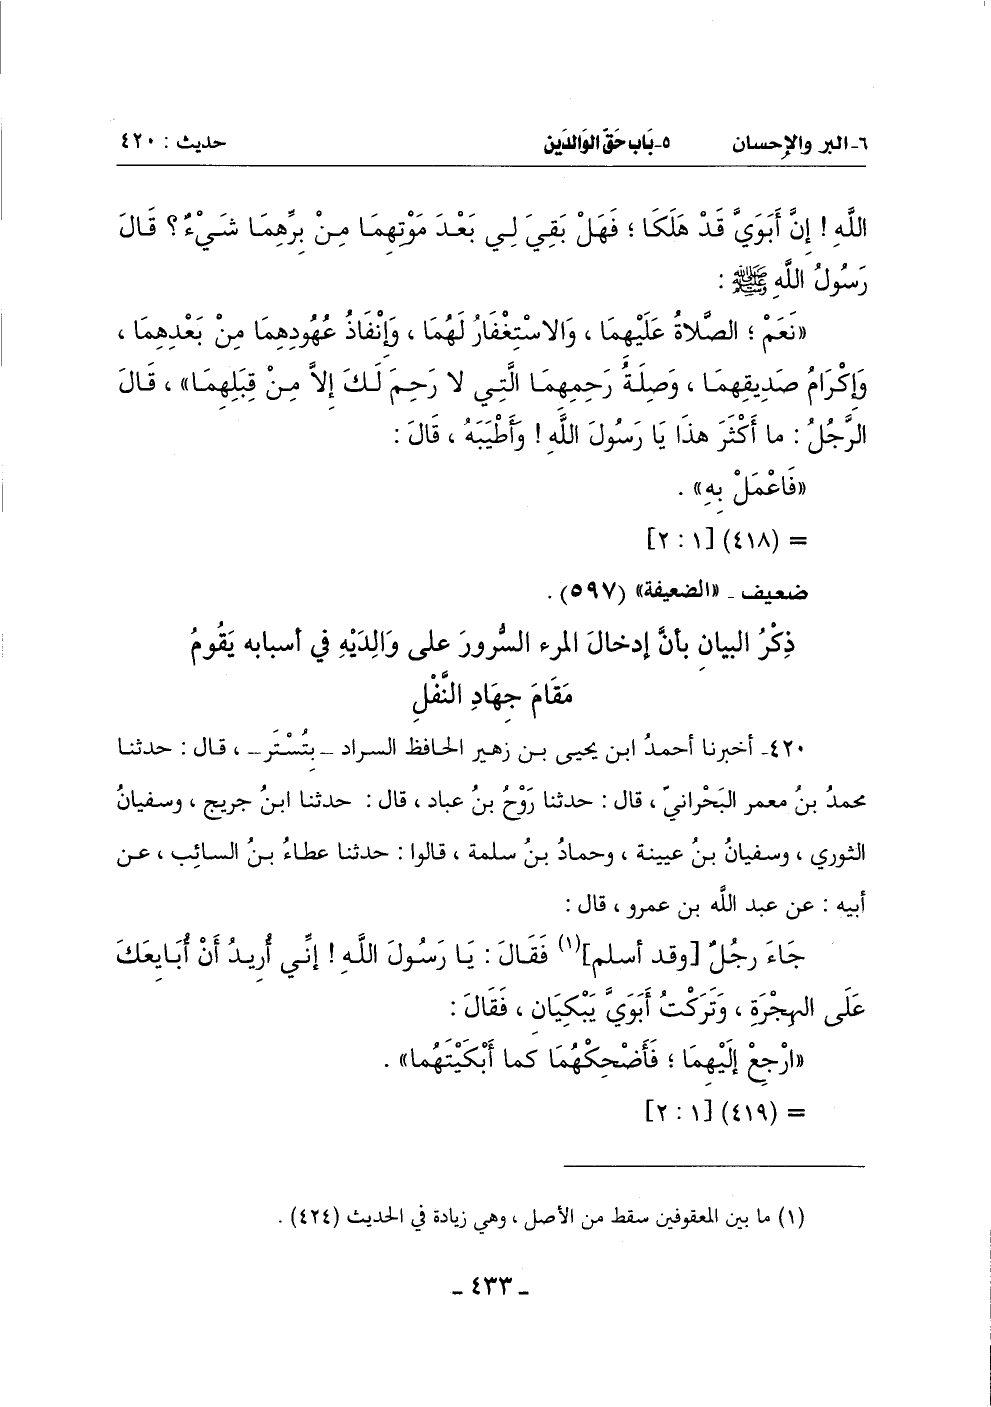 ٦ـ البر والإحسان ٥ـ بَاب حَقّ الوَالدَين حديث : ٤٢٠
اللَّهِ ! إِنَّ أَبَوَيَّ قَدْ هَلَكَا ؛ فَهَلْ بَقِيَ لِي بَعْدَ مَوْتِهِمَا مِنْ بِرِّهِمَا شَيْءٌ؟ قَالَ
رَسُولُ اللَّهِ ﷺ :
«نَعَمْ ؛ الصَّلاةُ عَلَيْهِمَا ، وَالاسْتِغْفَارُ لَهُمَا ، وَإِنْفَاذُ عُهُودِهِمَا مِنْ بَعْدِهِمَا ،
وَإِكْرَامُ صَدِيقِهِمَا ، وَصِلَةُ رَحِمِهِمَا الَّتِي لا رَحِمَ لَكَ إِلاَّ مِنْ قِبَلِهِمَا» ، قَالَ
الرَّجُلُ : ما أَكْثَرَ هذَا يَا رَسُولَ اللَّهِ ! وَأَطْيَبَهُ ، قَالَ :
«فَاعْمَلْ بِهِ» .
= (٤١٨) [١ : ٢]
ضعيف ـ «الضعيفة» (٥٩٧) .
ذِكْرُ البيانِ بأنَّ إدخالَ المرء السُّرورَ على وَالِدَيْهِ في أسبابه يَقُومُ
مَقَامَ جِهَادِ النَّفْلِ
٤٢٠ـ أخبرنا أحمدُ ابن يحيى بن زهير الحافظ السراد ـ بِتُسْتَر ـ ، قال : حدثنا
محمدُ بنُ معمر البَحْرانيّ ، قال : حدثنا رَوْحُ بنُ عباد ، قال : حدثنا ابنُ جريج ، وسفيانُ
الثوري ، وسفيانُ بنُ عيينة ، وحمادُ بنُ سلمة ، قالوا : حدثنا عطاءُ بنُ السائب ، عن
أبيه : عن عبد اللَّه بن عمرو ، قال :
جَاءَ رجُلٌ [وقد أسلم](١) فَقَالَ : يَا رَسُولَ اللَّهِ ! إِنِّي أُرِيدُ أَنْ أُبَايِعَكَ
عَلَى الهِجْرَةِ ، وَتَرَكْتُ أَبَوَيَّ يَبْكِيَانِ ، فَقَالَ :
«ارْجِعْ إِلَيْهِمَا ؛ فَأَضْحِكْهُمَا كما أَبْكَيْتَهُما» .
= (٤١٩) [١ : ٢]
(١) ما بين المعقوفين سقط من الأصل ، وهي زيادة في الحديث (٤٢٤) .
ـ ٤٣٣ ـ